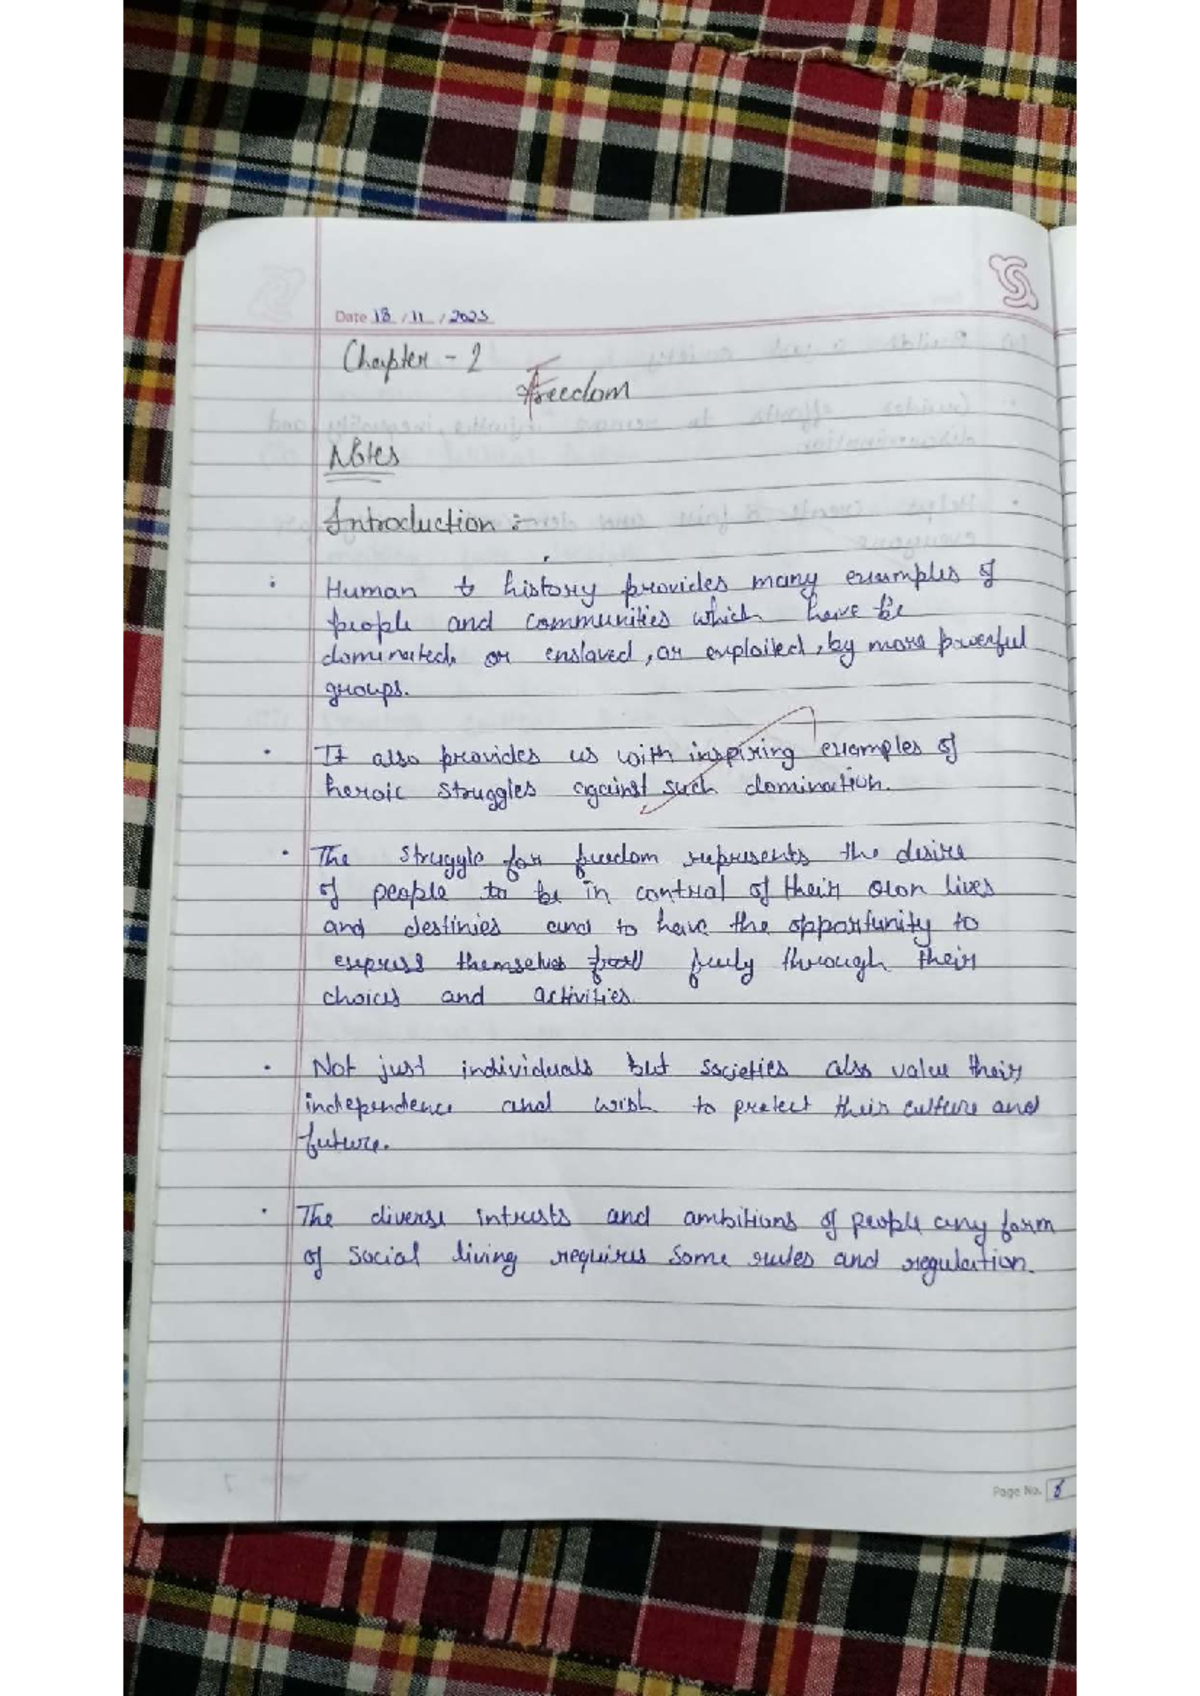 Date 18 / 11 / 2025
Chapter - 2
Freedom
Notes
Introduction :-
Human history provides many examples of
people and communities which have be
dominated, or enslaved, or exploited, by more powerful
groups.
It also provides us with inspiring examples of
heroic struggles against such domination.
The struggle for freedom represents the desire
of people to be in control of their own lives
and destinies and to have the opportunity to
express themselves freely through their
choices and activities.
Not just individuals but societies also value their
independence and wish to protect their culture and
future.
The diverse intrests and ambitions of people any form
of social living requires some rules and regulation.
Page No. 8